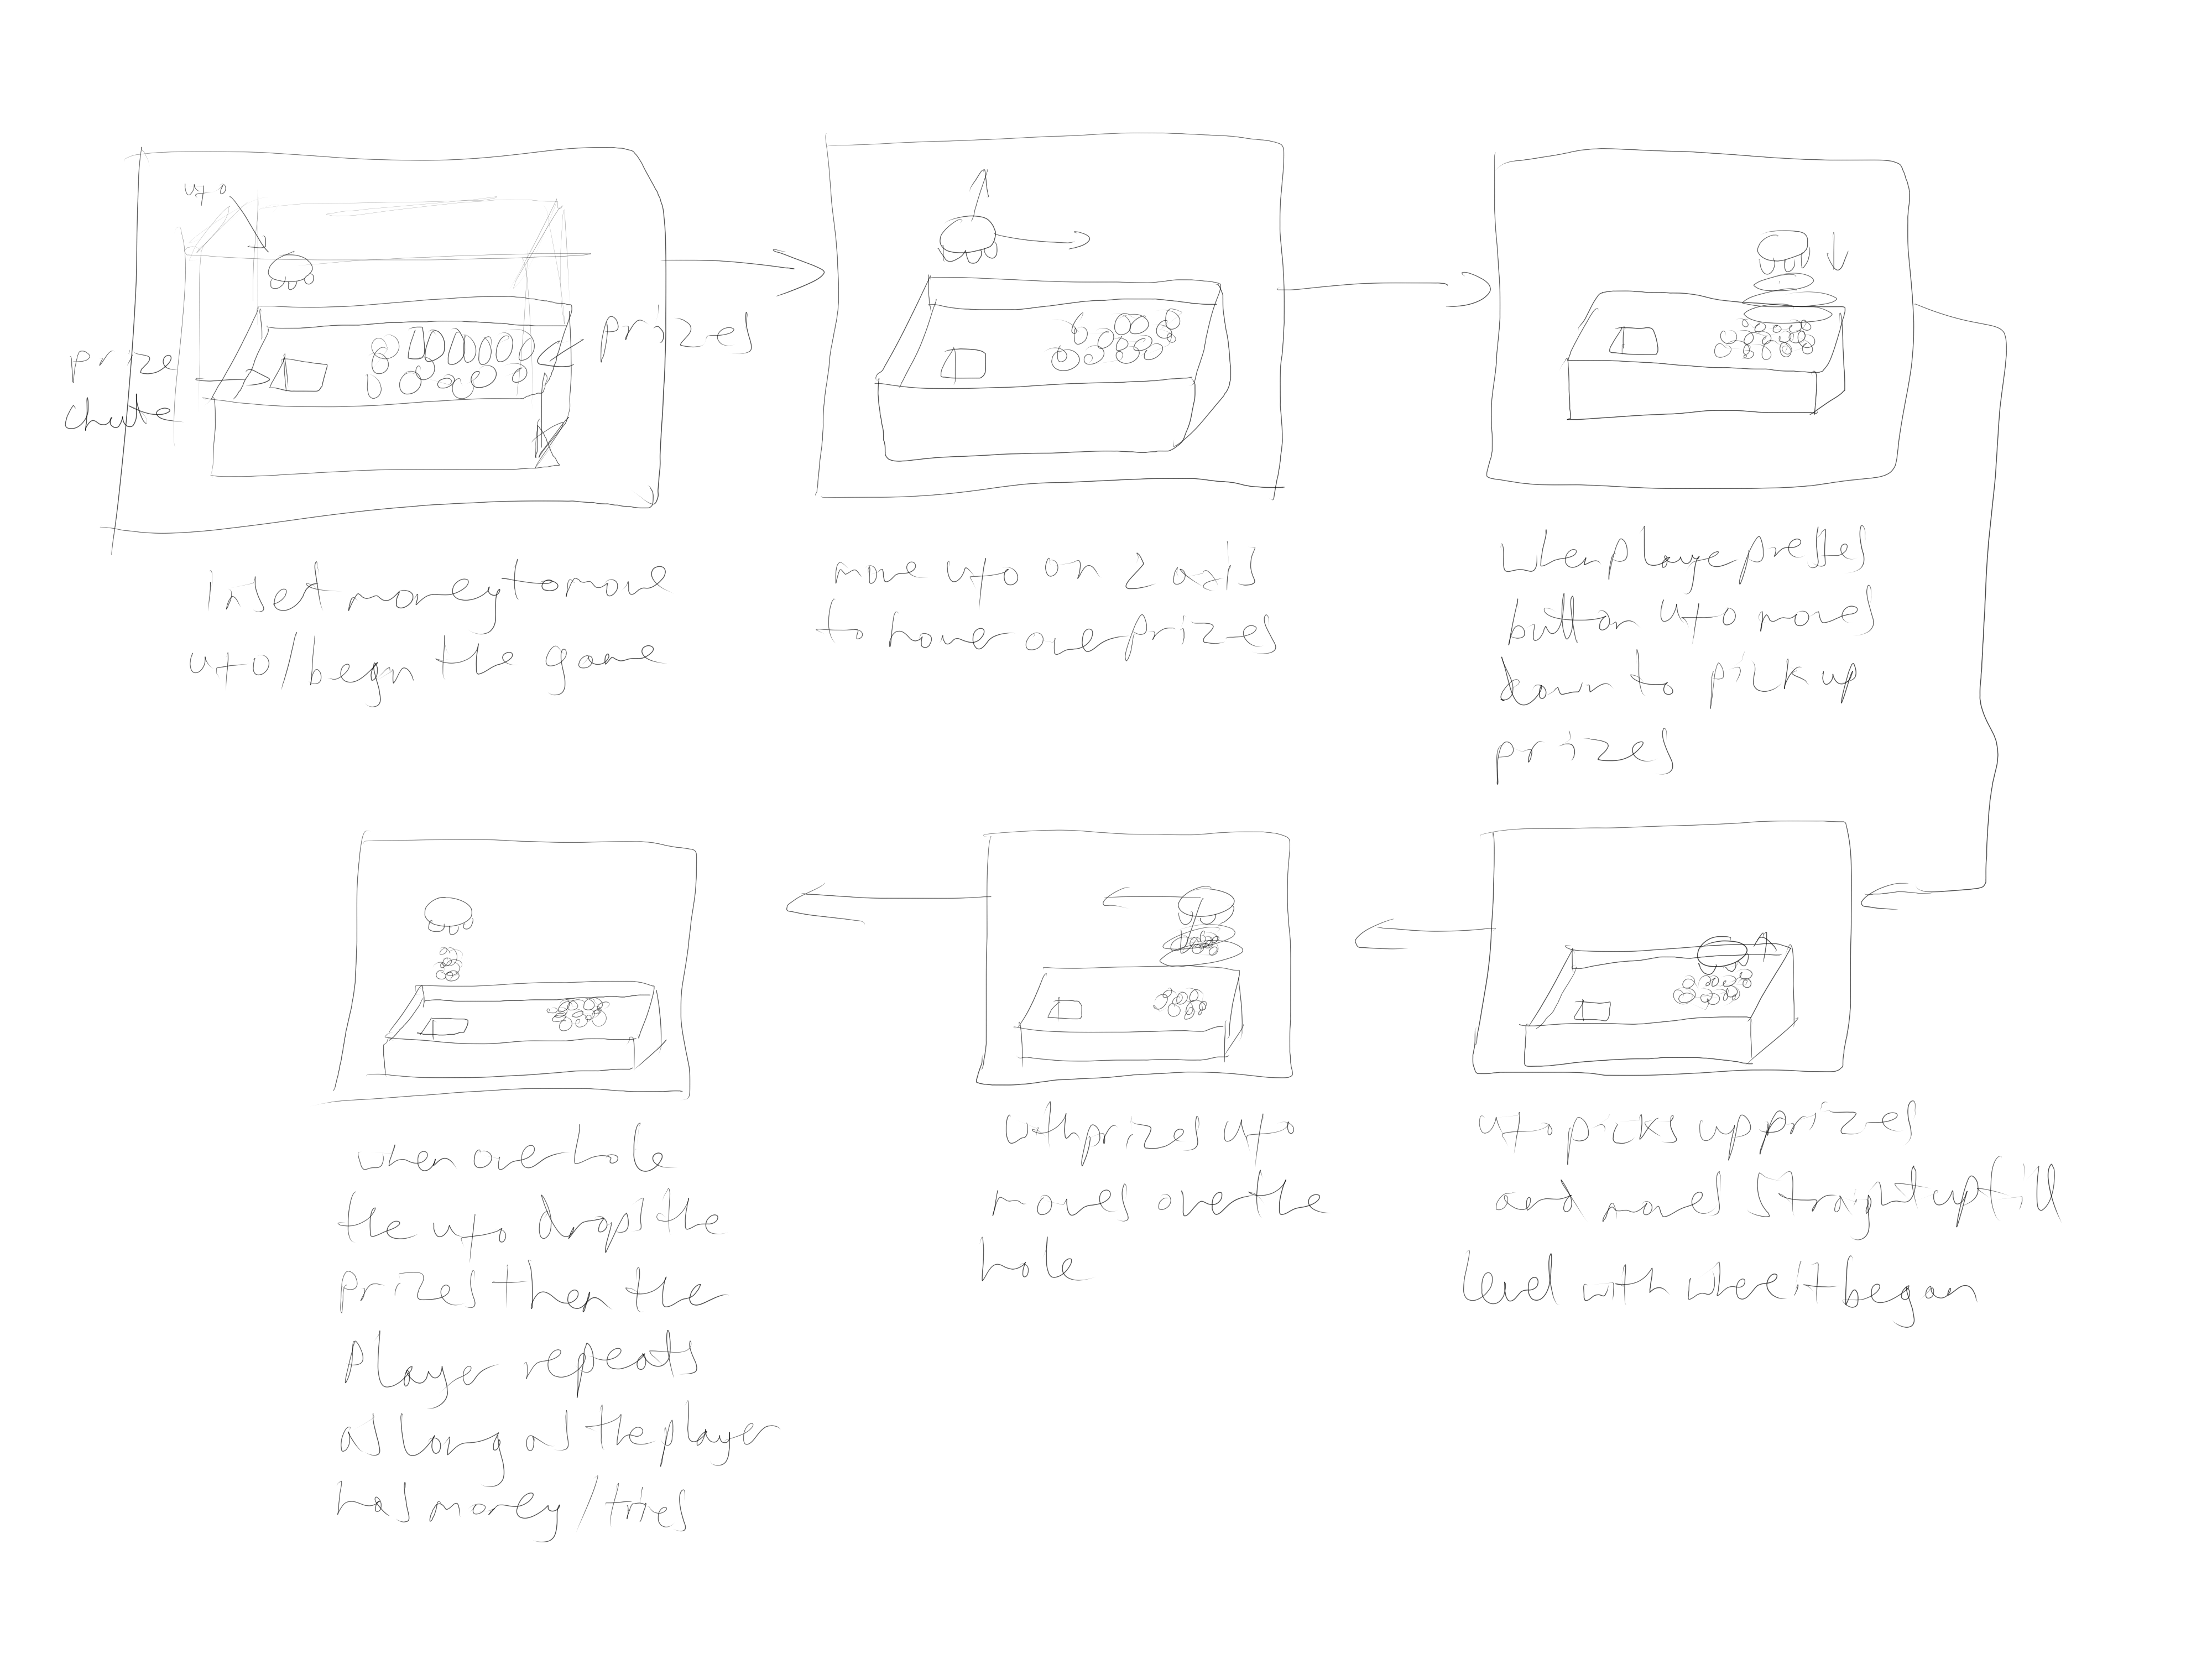 ufo
prizes
prize
chute
insert money to move
ufo/begin the game
move ufo on 2 axis
to hover over prizes
when playe presses
button ufo moves
down to pick up
prizes
ufo picks up prizes
and moves straight up till
level with where it began
with prizes ufo
moves over the
hole
when over hole
the ufo drops the
prizes then the
player repeats
as long as the player
has money/tries